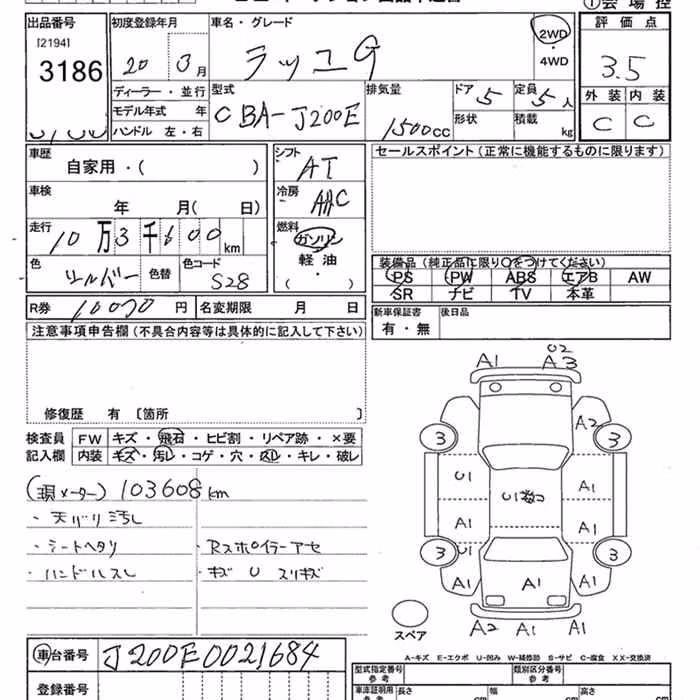 出品番号
[2194]
3186
初度登録年月
20 3月
ディーラー・並行
モデル年式 年
ハンドル 左・右
車名・グレード
ラッユG
2WD
・
4WD
評価点
3.5
外装 内装
C C
型式
CBA-J200E
排気量
1500cc
ドア 5
形状
定員 5人
積載 kg
車歴
自家用・( )
車検
年 月( 日)
走行
10万3千600km
色
シルバー
色替
色コード
S28
シフト
AT
冷房
AAC
燃料
ガソリン
軽油
・
( )
セールスポイント(正常に機能するものに限ります)
装備品(純正品に限り○をつけてください)
PS PW ABS エアB AW
SR ナビ TV 本革
R券 10070円
名変期限 月 日
新車保証書
有・無
後日品
注意事項申告欄(不具合内容等は具体的に記入して下さい)
修復歴 有 〔箇所 〕
検査員
記入欄
FW キズ・飛石・ヒビ割・リペア跡・×要
内装 キズ・汚レ・コゲ・穴・スレ・キレ・破レ
(現メーター)103608km
・天バリ汚レ
・シートヘタリ
・Rスポイラーアセ
・ハンドルスレ
・キズ U スリキズ
A1 U2
A3
A2
3 3
U1 A1
A1 A1
3 3
U1
A1 A1 A1
A2 A1 A1
スペア
車台番号 J200E0021684
登録番号
A-キズ E-エクボ U-凹み W-補修跡 S-サビ C-腐食 XX-交換済
型式指定番号
参考
類別区分番号
参考
車庫証明用
参考
長さ cm
幅 cm
高さ cm